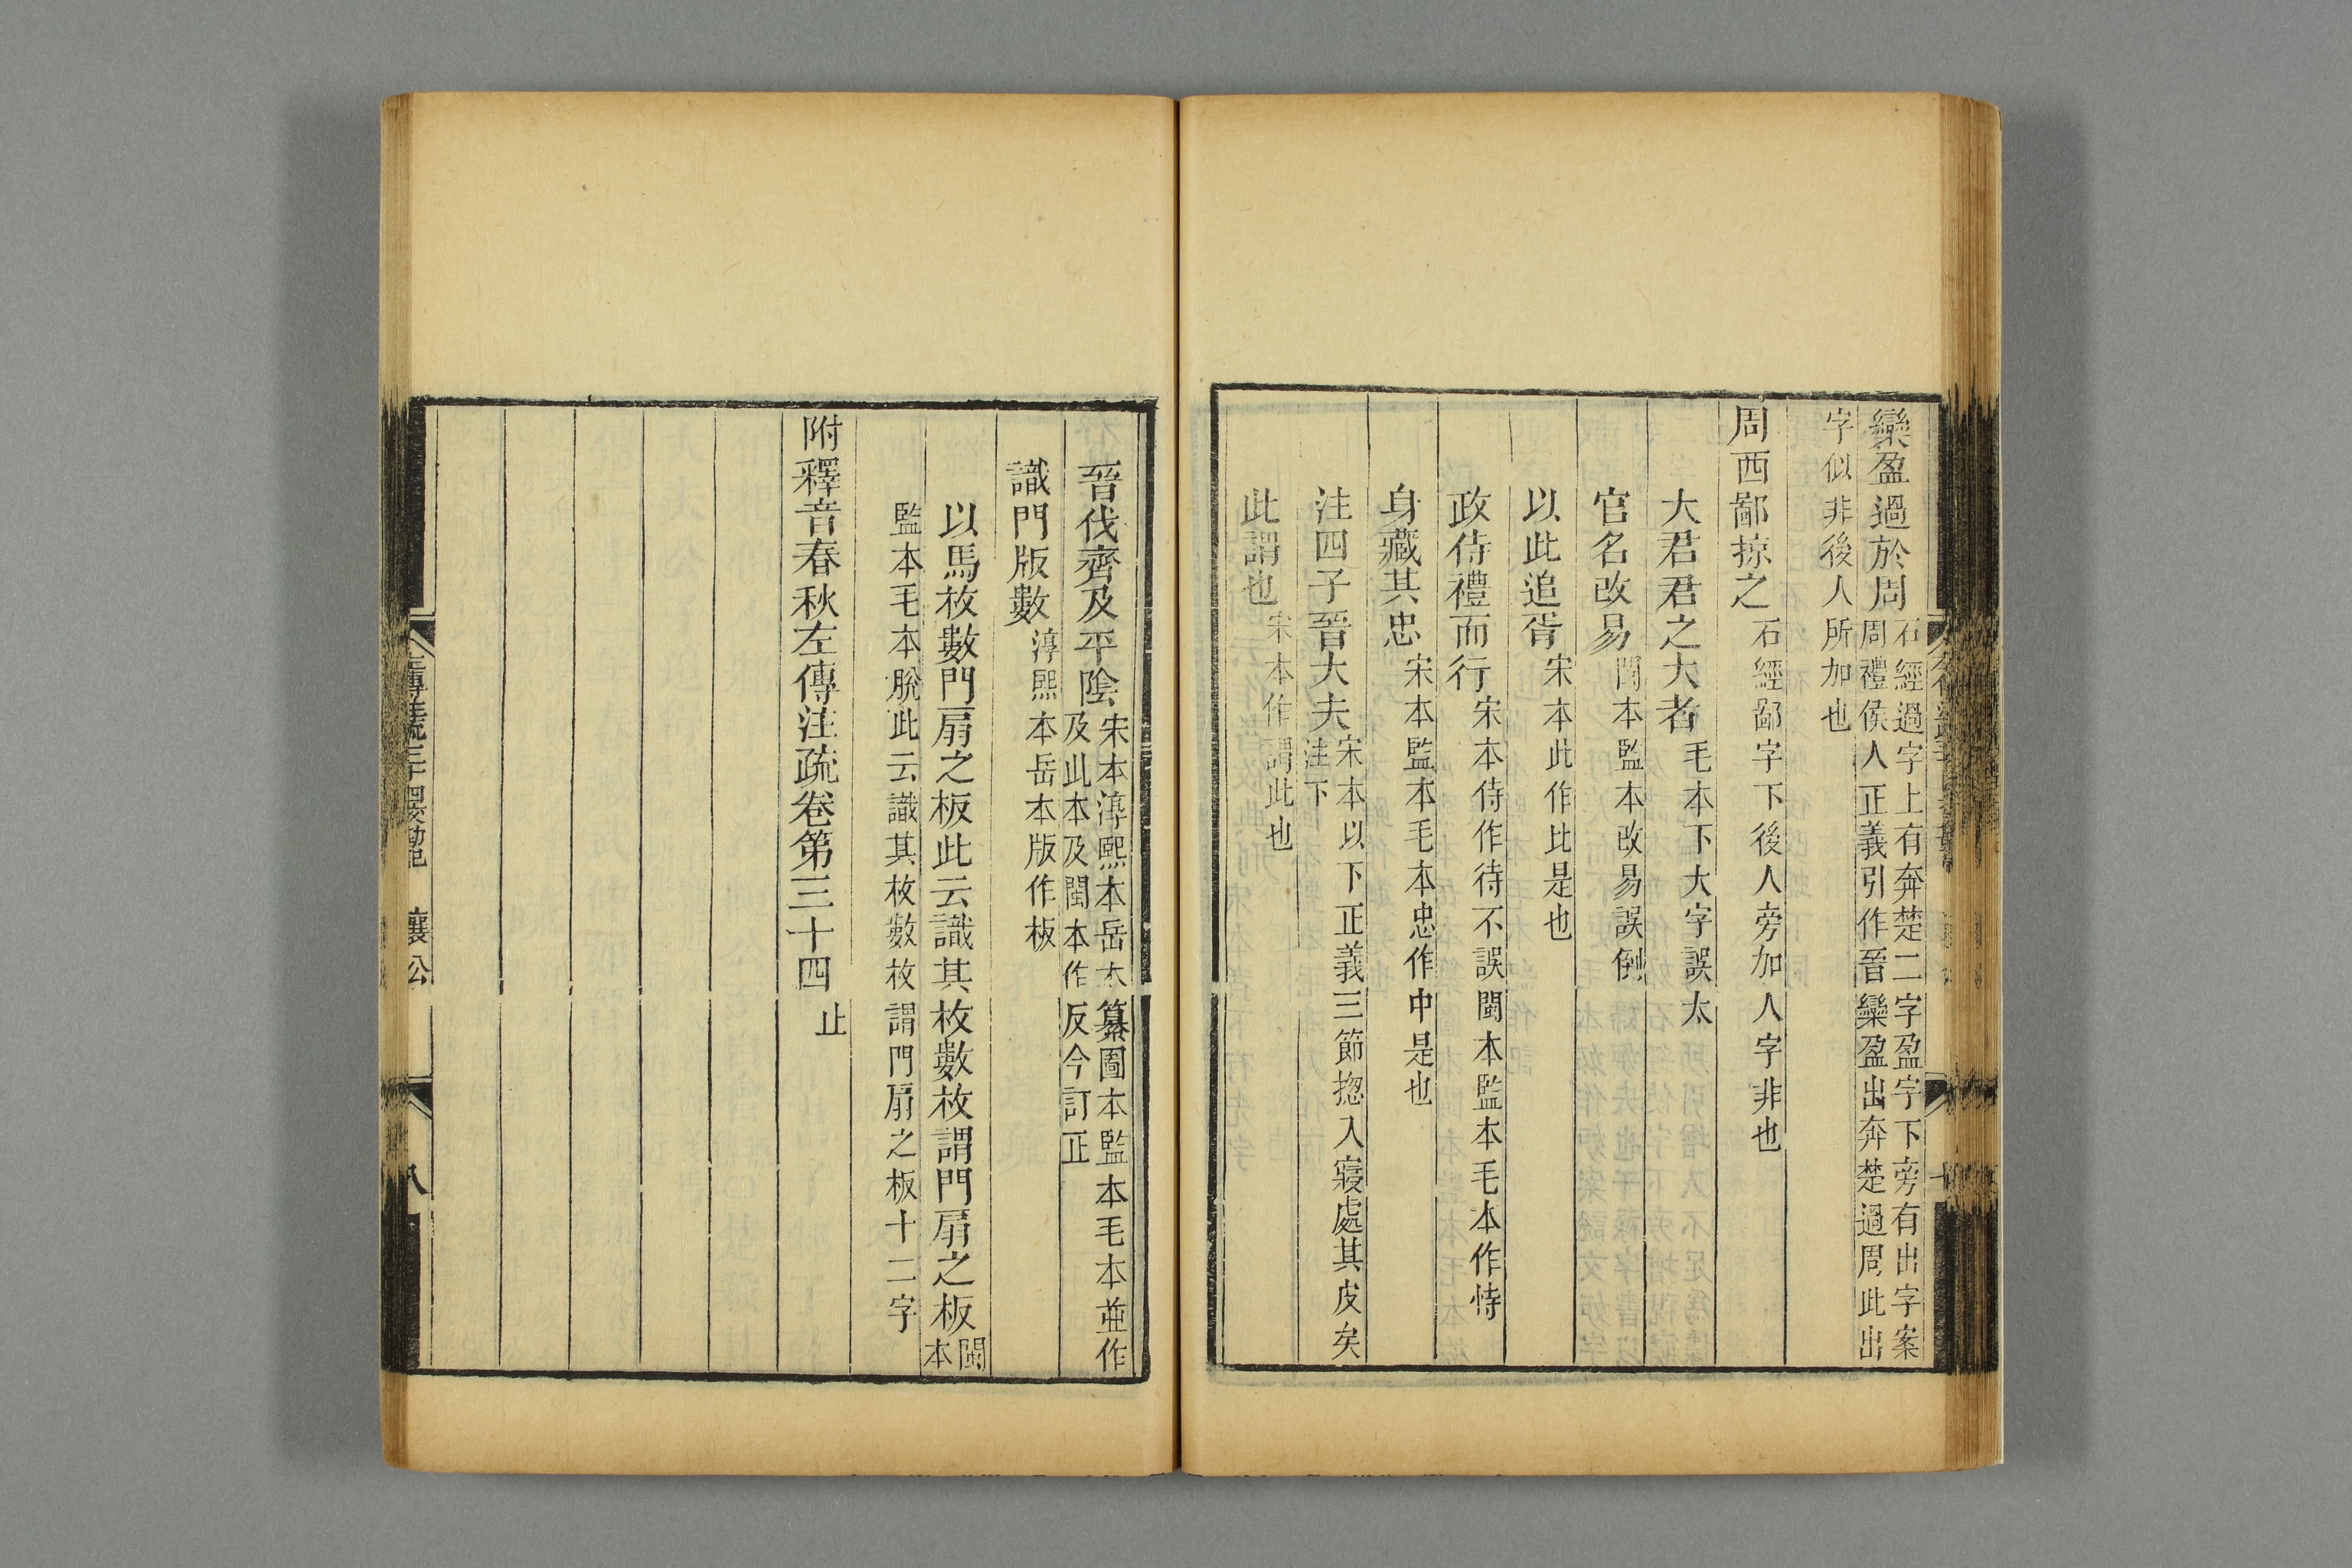 欒盈過於周石經過字上有奔楚二字盈字下旁有出字案
周禮侯人正義引作晉欒盈出奔楚過周此出
字似非後人所加也
周西鄙掠之石經鄙字下後人旁加人字非也
大君君之大者毛本下大字誤太
官名改易閩本監本改易誤倒
以此追胥宋本此作比是也
政侍禮而行宋本侍作待不誤閩本監本毛本作恃
身藏其忠宋本監本毛本忠作中是也
注四子晉大夫宋本以下正義三節揔入寢處其皮矣
注下
此謂也宋本作謂此也
晉伐齊及平陰宋本淳熙本岳本纂圖本監本毛本並作
及此本及閩本作反今訂正
識門版數淳熙本岳本版作板
以馬枚數門扇之板此云識其枚數枚謂門扇之板閩
本
監本毛本脫此云識其枚數枚謂門扇之板十二字
附釋音春秋左傳注疏卷第三十四止
襄公
八